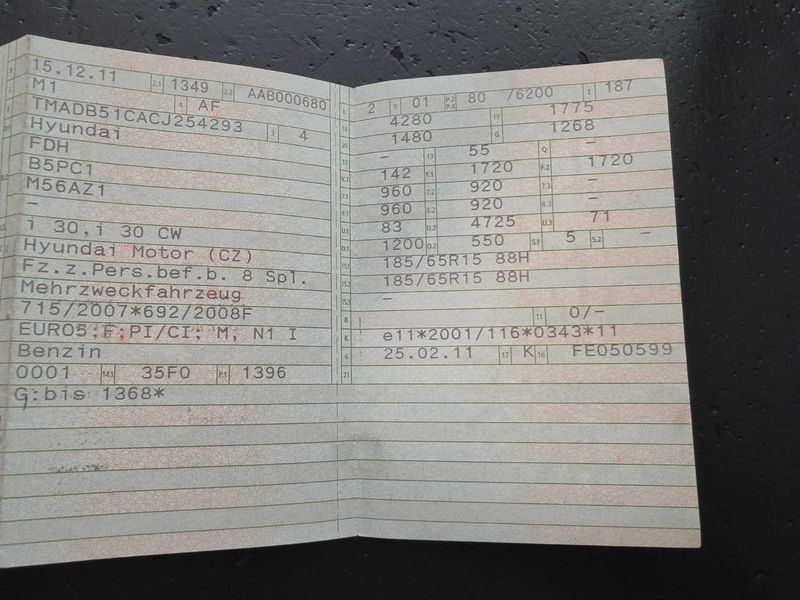 15.12.11 2.1 1349 2.2 AAB000680
M1 4 AF
TMADB51CACJ254293 3 4
Hyundai
FDH
B5PC1
M56AZ1
-
i 30,i 30 CW
Hyundai Motor (CZ)
Fz.z.Pers.bef.b. 8 Spl.
Mehrzweckfahrzeug
715/2007*692/2008F
EURO5;F;PI/CI; M, N1 I
Benzin
0001 14.1 35F0 P.1 1396
G:bis 1368*
L 2 9 01 P.2 P.4 80 /6200 T 187
18 4280 19 1775
20 1480 G 1268
12 - 13 55 Q -
V.7 142 F.1 1720 F.2 1720
7.1 960 7.2 920 7.3 -
8.1 960 8.2 920 8.3 -
U.1 83 U.2 4725 U.3 71
O.1 1200 O.2 550 S.1 5 S.2 -
15.1 185/65R15 88H
15.2 185/65R15 88H
15.3 -
R 11 0/-
K e11*2001/116*0343*11
6 25.02.11 17 K 16 FE050599
21